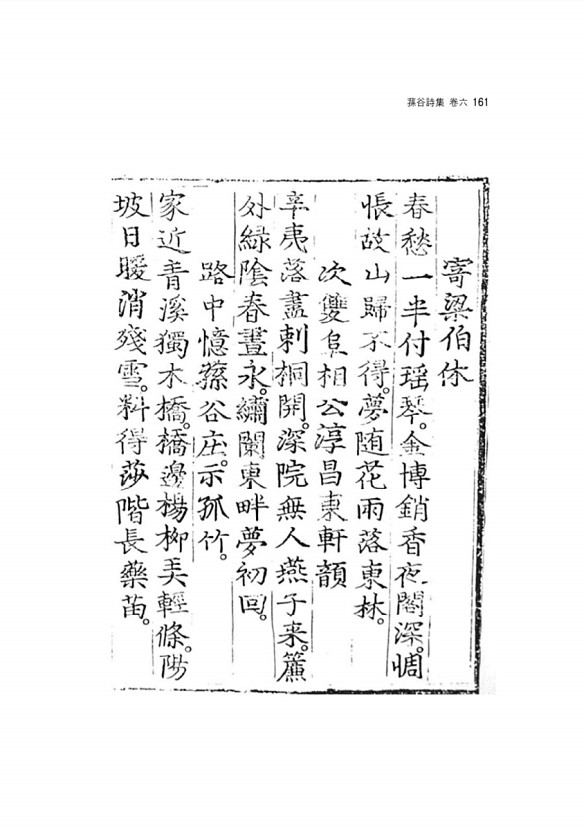 蓀谷詩集 卷六 161
寄梁伯休
春愁一半付瑶琴。金博銷香夜閣深。惆
悵故山歸不得。夢随花雨落東林。
次雙阜相公淳昌東軒韻
辛夷落盡刺桐開。深院無人燕子来。簾
外緑陰春晝永。繡闌東畔夢初回。
路中憶蓀谷庄。示孤竹。
家近青溪獨木橋。橋邊楊柳弄輕條。陽
坡日暖消殘雪。料得莎階長藥苗。